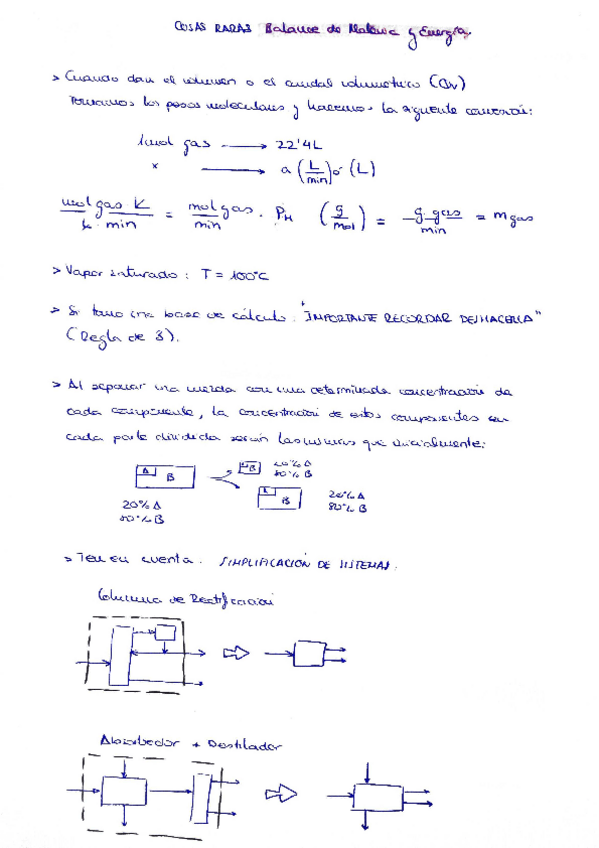 COSAS RARAS Balance de Materia y Energía.
> Cuando dan el volumen o el caudal volumétrico (Qv)
Tomamos los pesos moleculares y hacemos la siguiente conversión:
1mol gas → 22'4L
x → a (L/min) ó (L)
mol gas K / K · min = mol gas / min · PM (g/mol) = g gas / min = m gas
> Vapor saturado: T = 100°C
> Si tomo una base de cálculo. "IMPORTANTE RECORDAR DESHACERLA"
(Regla de 3).
> Al separar una mezcla con una determinada concentración de
cada componente, la concentración de estos componentes en
cada parte dividida serán las mismas que inicialmente:
A B
20% A
80% B
B
20% A
80% B
A B
20% A
80% B
> Ten en cuenta. SIMPLIFICACIÓN DE SISTEMAS.
Columna de Rectificación
Absorbedor + Destilador